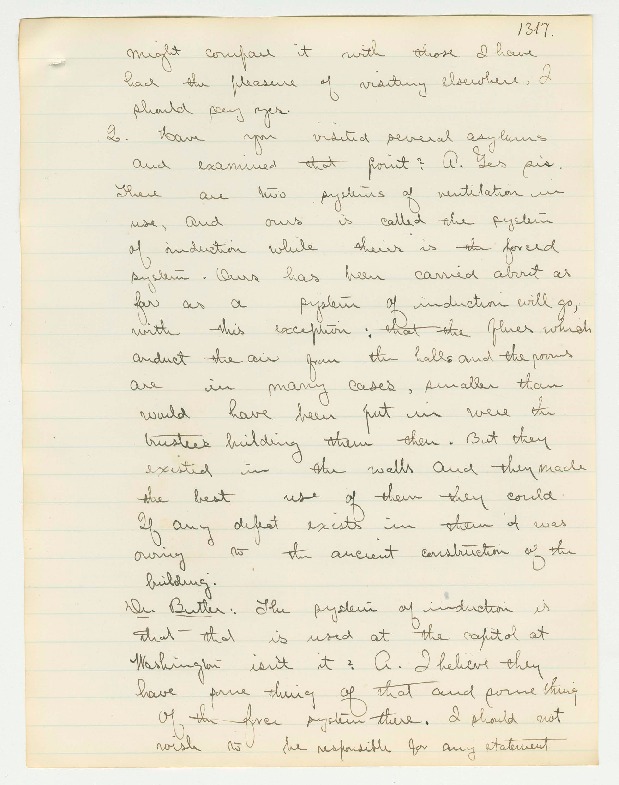 1317.
might compare it with those I have
had the pleasure of visiting elsewhere, I
should say yes.
Q. Have you visited several asylums
and examined that point? A. Yes sir.
There are two systems of ventilation in
use, and ours is called the system
of induction while theirs is the forced
system. Ours has been carried about as
far as a system of induction will go,
with this exception: that the flues which
conduct the air from the halls and the rooms
are in many cases, smaller than
would have been put in were the
trustees building them then. But they
existed in the walls and they made
the best use of them they could.
If any defect exists in them it was
owing to the ancient construction of the
building.
Dr. Butler: The system of induction is
that that is used at the capitol at
Washington isn't it? A. I believe they
have some thing of that and some thing
of the system there. I should not
wish to be responsible for any statement